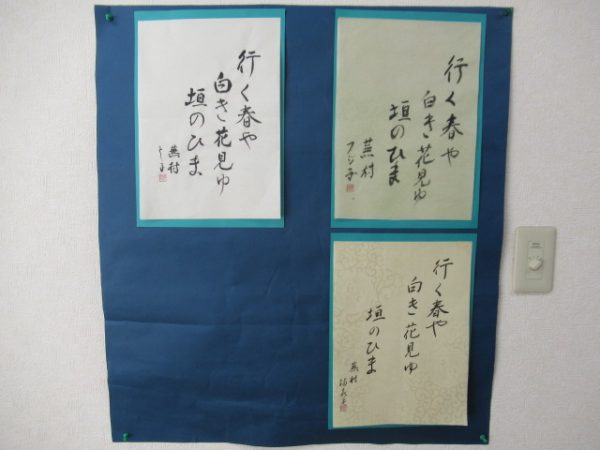 行く春や
白き花見ゆ
垣のひま
蕪村
行く春や
白き花見ゆ
垣のひま
蕪村
行く春や
白き花見ゆ
垣のひま
蕪村